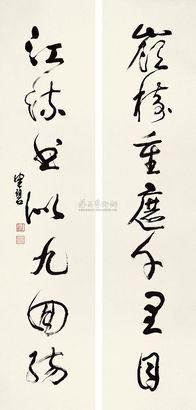 嶺樹重遮千里目
江流曲似九回腸